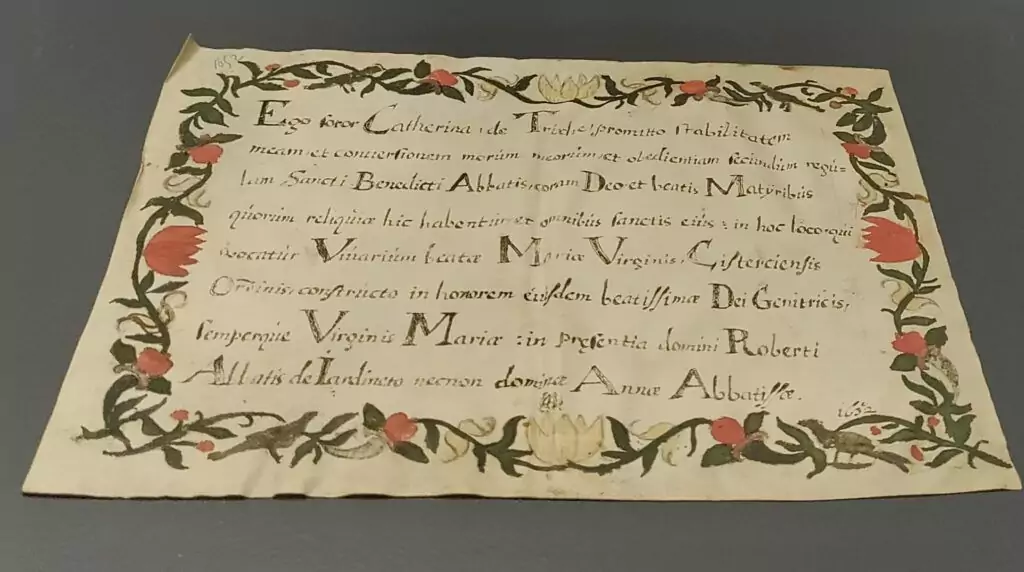 1652
Ego soror Catherina de Trixhe promitto stabilitatem
meam et conversionem morum meorum et obedientiam secundum regu-
lam Sancti Benedicti Abbatis, coram Deo et beatis Matyribus
quorum reliquiæ hic habentur et omnibus sanctis eius: in hoc loco qui
vocatur Vivarium beatæ Mariæ Virginis, Cisterciensis
Ordinis, constructo in honorem eiusdem beatissimæ Dei Genitricis,
semperque Virginis Mariæ: in presentia domini Roberti
Abbatis de Iardineto necnon dominæ Annæ Abbatissæ.
1652